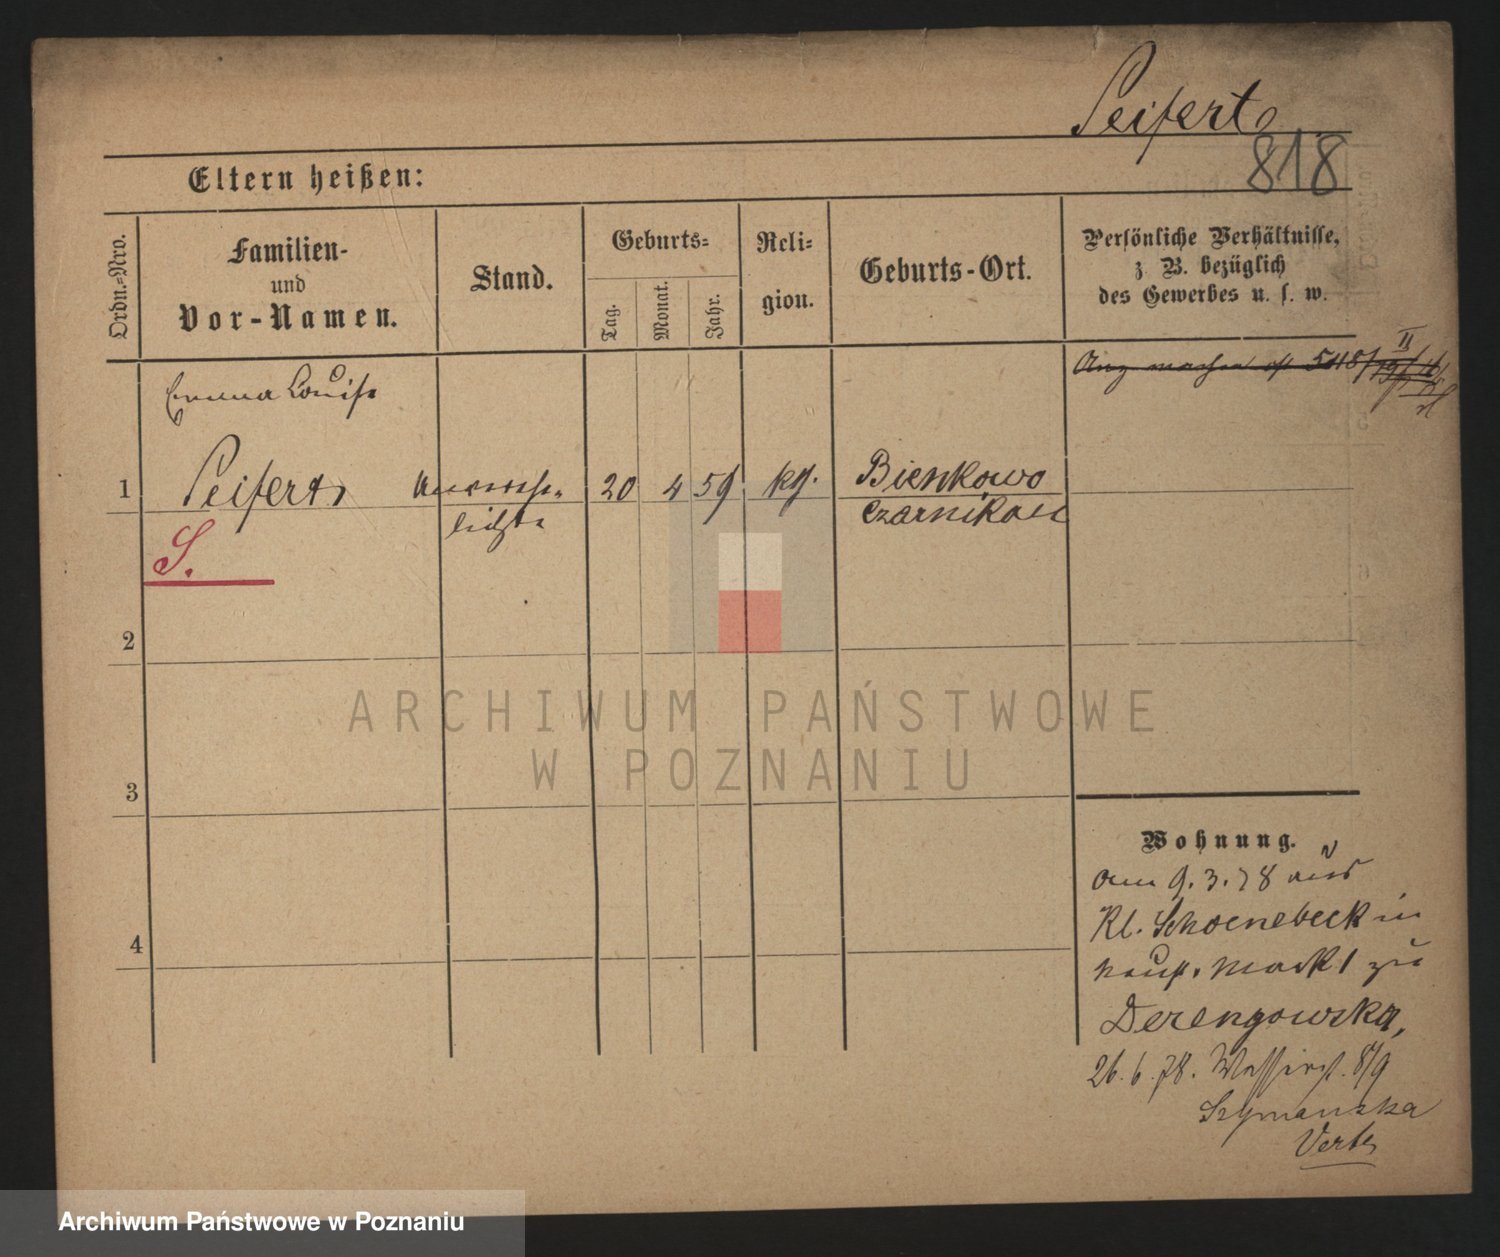 Seifert
818
Eltern heißen:
Ordn.-Nro.
Familien-
und
Vor-Namen.
Stand.
Geburts-
Tag.
Monat.
Jahr.
Reli-
gion.
Geburts-Ort.
Persönliche Verhältnisse,
z. B. bezüglich
des Gewerbes u. s. w.
Emma Louise
1 Seifert Unverehe- 20 4 59 kg. Bienkowo
lichte Czarnikau
S.
2
3
4
ARCHIWUM PAŃSTWOWE
W POZNANIU
Wohnung.
am 9.3.78 aus
Kl. Schoenebeck in
Markt zu
Derengowska,
26.6.78. 8/9
Szymanska
Archiwum Państwowe w Poznaniu